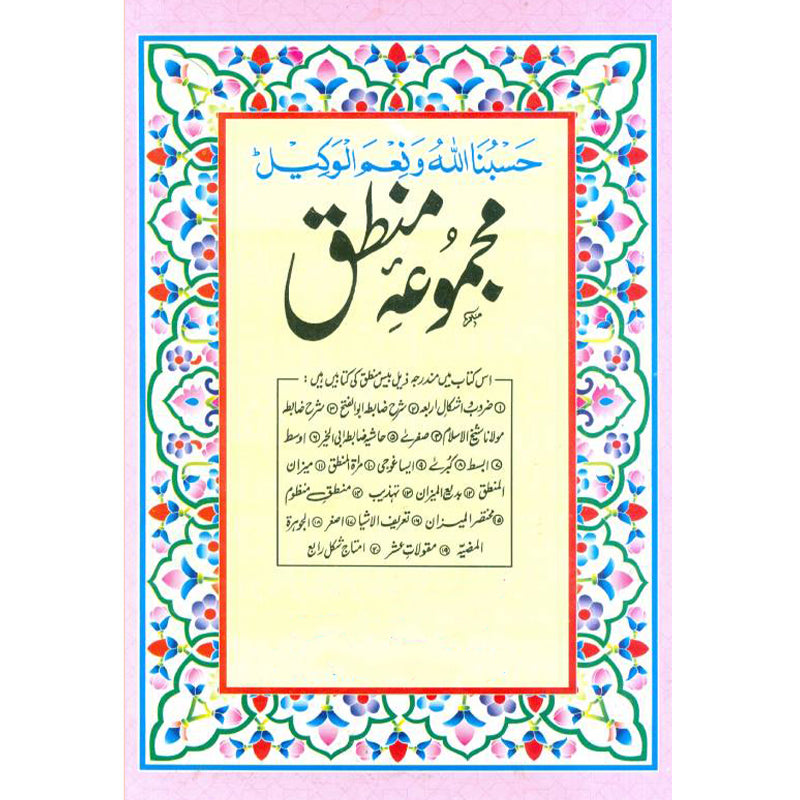 حَسْبُنَا اللّٰهُ وَ نِعْمَ الْوَكِيْل
مجموعۂ منطق
اس کتاب میں مندرجہ ذیل بیس منطق کی کتابیں ہیں:
① ضروب اشکال اربعہ ② شرح ضابطہ ابوالفتح ③ شرح ضابطہ
مولانا شیخ الاسلام ④ صغریٰ ⑤ حاشیہ ضابطہ ابی الخیر ⑥ اوسط
⑦ ابسط ⑧ کبریٰ ⑨ ایساغوجی ⑩ مرأة المنطق ⑪ میزان
المنطق ⑫ بدیع المیزان ⑬ تہذیب ⑭ منطق منظوم
⑮ مختصر المیزان ⑯ تعریف الاشیا ⑰ اصغر ⑱ الجوہرة
المضیّہ ⑲ مقولات عشر ⑳ امتاج شکل رابع